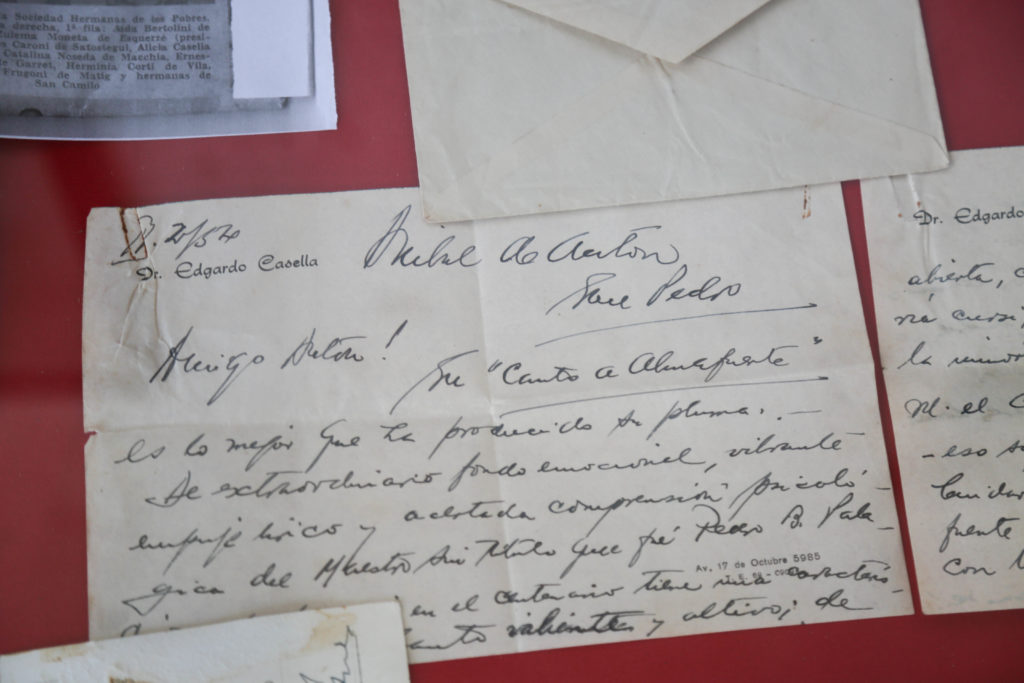 a Sociedad Hermanas de los Pobres.
a derecha, 1ª fila: Aída Bertolini de
Zulema Moneta de Esquerré (presi-
s Caroni de Satostegui, Alicia Casella
Catalina Noseda de Macchia, Ernes-
de Garret, Herminia Corti de Vila,
Frugoni de Matig y hermanas de
San Camilo
Dr. Edgardo Casella
Aníbal de Antón
San Pedro
Amigo Antón!
Su "Canto a Almafuerte"
es lo mejor que ha producido su pluma. —
De extraordinario fondo emocional, vibrante
empuje lírico y acertada comprensión psicoló-
gica del Maestro sin título que fué Pedro B. Pala-
Av. 17 de Octubre 5985
en el centenario tiene una
canto valiente y altivo; de
Dr. Edgardo
abierta,
la
el
- eso
fuente
con